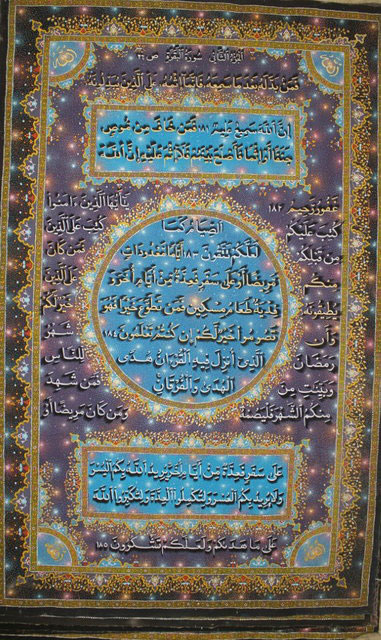 الجزء الثاني سورة البقرة ص ٢٦
فَمَن بَدَّلَهُ بَعْدَ مَا سَمِعَهُ فَإِنَّمَا إِثْمُهُ عَلَى الَّذِينَ يُبَدِّلُونَهُ
إِنَّ اللَّهَ سَمِيعٌ عَلِيمٌ ١٨١ فَمَنْ خَافَ مِن مُّوصٍ
جَنَفًا أَوْ إِثْمًا فَأَصْلَحَ بَيْنَهُمْ فَلَا إِثْمَ عَلَيْهِ إِنَّ اللَّهَ
غَفُورٌ رَّحِيمٌ ١٨٢ يَا أَيُّهَا الَّذِينَ آمَنُوا
كُتِبَ عَلَيْكُمُ الصِّيَامُ كَمَا كُتِبَ عَلَى الَّذِينَ
مِن قَبْلِكُمْ لَعَلَّكُمْ تَتَّقُونَ ١٨٣ أَيَّامًا مَّعْدُودَاتٍ فَمَن كَانَ
مِنكُم مَّرِيضًا أَوْ عَلَى سَفَرٍ فَعِدَّةٌ مِّنْ أَيَّامٍ أُخَرَ وَعَلَى الَّذِينَ
يُطِيقُونَهُ فِدْيَةٌ طَعَامُ مِسْكِينٍ فَمَن تَطَوَّعَ خَيْرًا فَهُوَ خَيْرٌ
وَأَن تَصُومُوا خَيْرٌ لَّكُمْ إِن كُنتُمْ تَعْلَمُونَ ١٨٤ شَهْرُ
رَمَضَانَ الَّذِي أُنزِلَ فِيهِ الْقُرْآنُ هُدًى لِّلنَّاسِ
وَبَيِّنَاتٍ مِّنَ الْهُدَى وَالْفُرْقَانِ فَمَن شَهِدَ
مِنكُمُ الشَّهْرَ فَلْيَصُمْهُ وَمَن كَانَ مَرِيضًا أَوْ
عَلَى سَفَرٍ فَعِدَّةٌ مِّنْ أَيَّامٍ أُخَرَ يُرِيدُ اللَّهُ بِكُمُ الْيُسْرَ
وَلَا يُرِيدُ بِكُمُ الْعُسْرَ وَلِتُكْمِلُوا الْعِدَّةَ وَلِتُكَبِّرُوا اللَّهَ
عَلَى مَا هَدَاكُمْ وَلَعَلَّكُمْ تَشْكُرُونَ ١٨٥